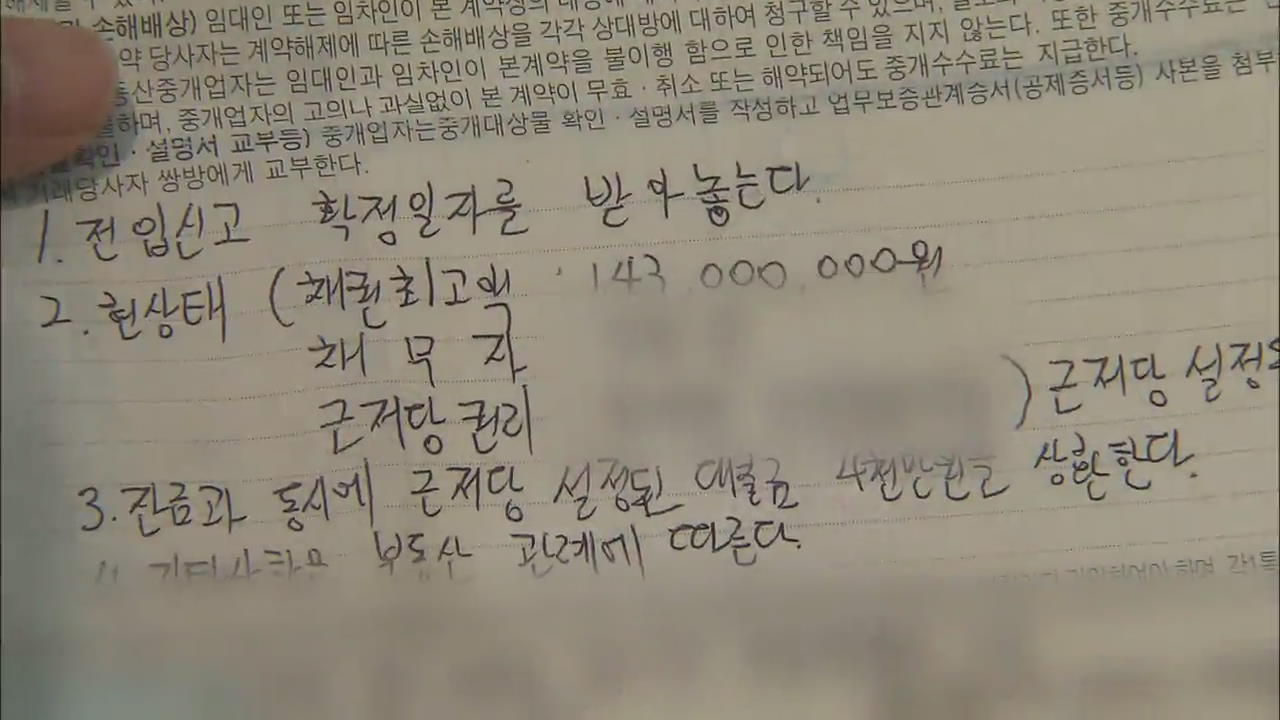 손해배상) 임대인 또는 임차인이 본 계약상의
약 당사자는 계약해제에 따른 손해배상을 각각 상대방에 대하여 청구할 수 있으며,
중개업자는 임대인과 임차인이 본계약을 불이행 함으로 인한 책임을 지지 않는다. 또한 중개수수료는
하며, 중개업자의 고의나 과실없이 본 계약이 무효·취소 또는 해약되어도 중개수수료는 지급한다.
확인·설명서 교부등) 중개업자는중개대상물 확인·설명서를 작성하고 업무보증관계증서(공제증서등) 사본을 첨부
거래당사자 쌍방에게 교부한다.
1. 전입신고 확정일자를 받아놓는다.
2. 현상태 (채권최고액 143,000,000원
채무자
근저당권리 ) 근저당 설정
3. 잔금과 동시에 근저당 설정된 대출금 4천만원을 상환한다.
기타사항은 부동산 관례에 따른다.